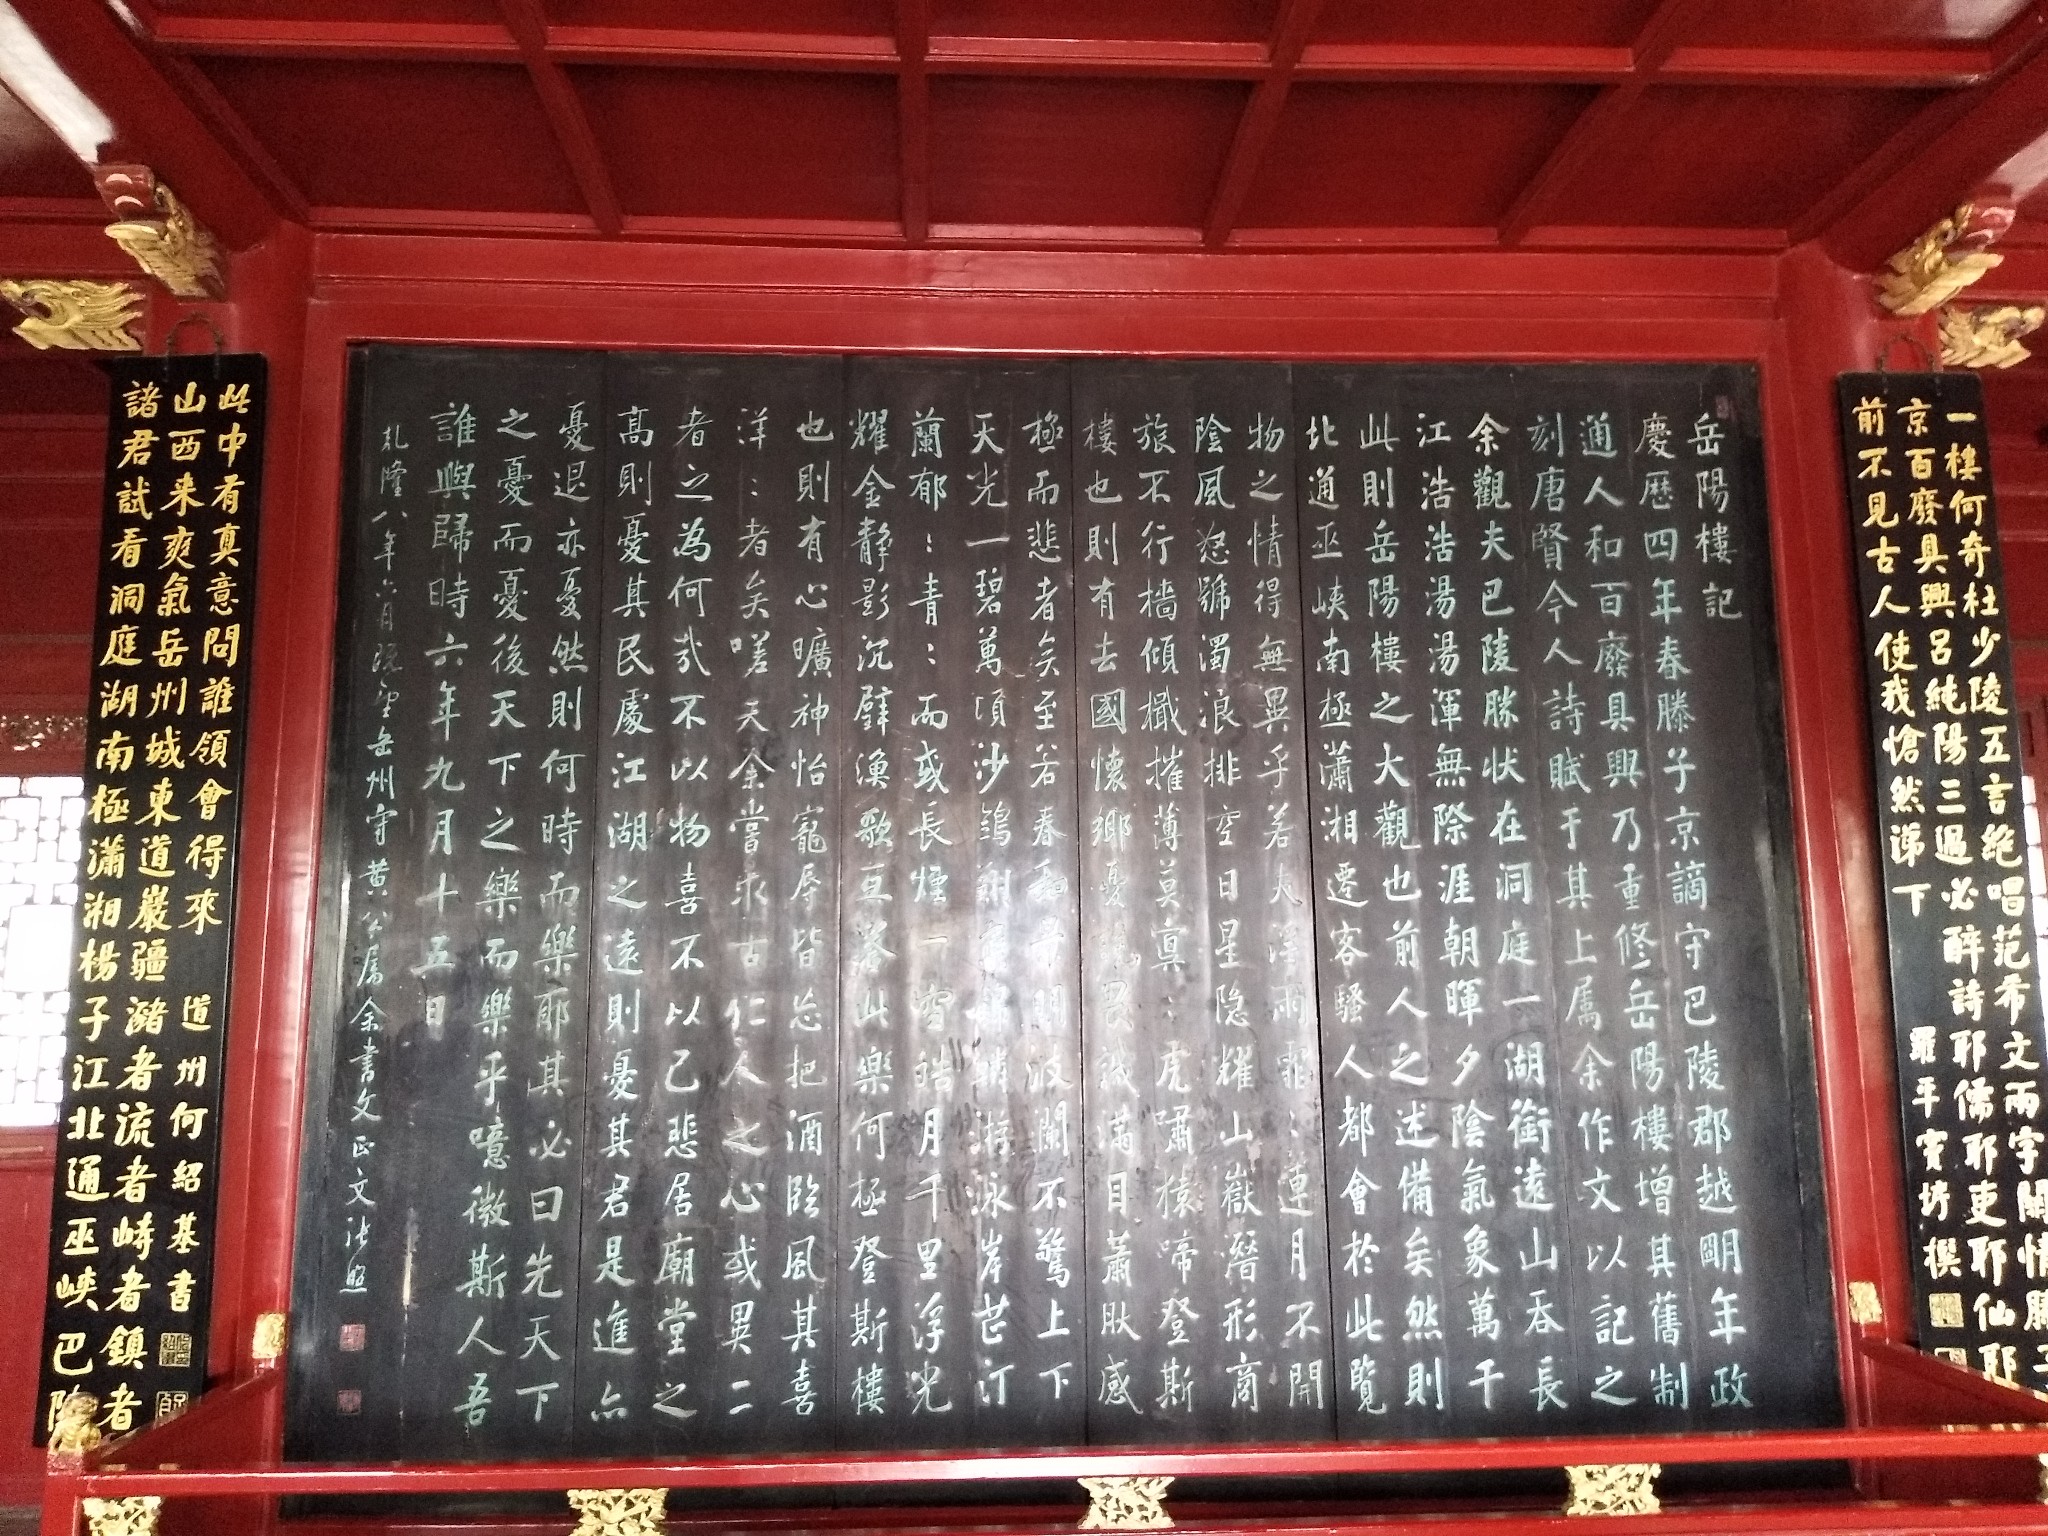 一樓何奇杜少陵五言絕唱范希文兩字關情滕子
京百廢具興呂純陽三過必醉詩耶儒耶吏耶仙耶
前不見古人使我愴然涕下
羅平竇垿撰
岳陽樓記
慶歷四年春滕子京謫守巴陵郡越明年政
通人和百廢具興乃重修岳陽樓增其舊制
刻唐賢今人詩賦于其上属余作文以記之
余觀夫巴陵勝状在洞庭一湖銜遠山吞長
江浩浩湯湯渾無際涯朝暉夕陰氣象萬千
此則岳陽樓之大觀也前人之述備矣然則
北通巫峽南極瀟湘遷客騷人都會於此覽
物之情得無異乎若夫淫雨霏〻連月不開
陰風怒號濁浪排空日星隐耀山嶽潛形商
旅不行檣傾檝摧薄莫冥〻虎嘯猿啼登斯
樓也則有去國懷鄉憂讒畏譏滿目蕭肰感
極而悲者矣至若春和景明波瀾不驚上下
天光一碧萬頃沙鷗翔集錦鱗游泳岸芷汀
蘭郁〻青〻而或長煙一空皓月千里浮光
耀金靜影沉璧漁歌互答此樂何極登斯樓
也則有心曠神怡寵辱皆忘把酒臨風其喜
洋〻者矣嗟夫余嘗求古仁人之心或異二
者之為何哉不以物喜不以己悲居廟堂之
高則憂其民處江湖之遠則憂其君是進亦
憂退亦憂然則何時而樂耶其必曰先天下
之憂而憂後天下之樂而樂乎噫微斯人吾
誰與歸時六年九月十五日
乾隆八年六月岳州守黄公属余書文正文張照
諸君試看洞庭湖南極瀟湘楊子江北通巫峽巴陵
山西来爽氣岳州城東道巖疆瀦者流者峙者鎮者
此中有真意問誰領會得來
道州何紹基書